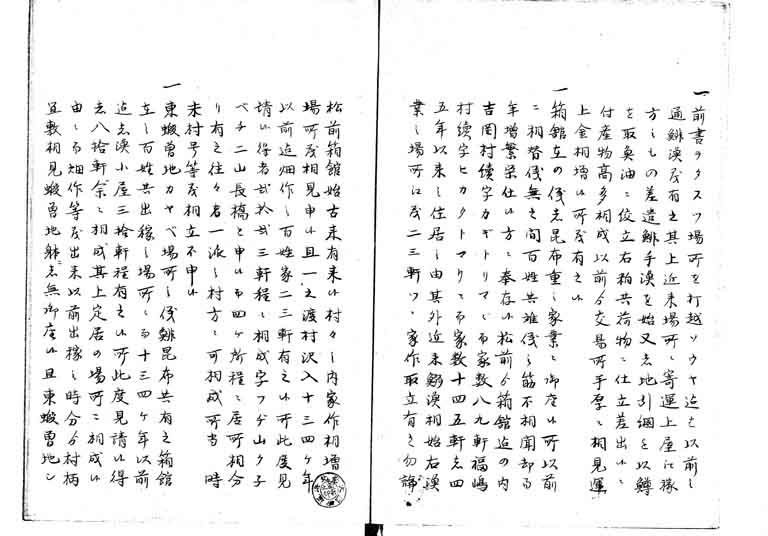 一前書ヲタスツ場所を打越ソウヤ迄も以前ゟ
通鯡漁茂有之其上近来場所ニ寄運上屋江稼
方之もの差遣鯡手漁を始又者地引網を以鱒
を取魚油ニ佼立右粕共荷物ニ仕立差出し
付産物高多相成以前ゟ交易所手厚ニ相見運
上金相増候所茂有之候
一箱館在の儀者昆布重之家業ニ御座候所以前
ニ相替儀無之間百姓共難儀之筋不相聞却而
年増繁栄仕候方ニ奉存候松前ゟ箱館迄の内
吉岡村續字カギトリマニ而家数八九軒福嶋
村續字ヒカクトマリニ而家数十四五軒者四
五年以来之住居之由其外近来鰯漁相始右漁
業之場所江茂二三軒ツヽ家作取立有之勿論
松前箱館始古来有来候村々之内家作相増
場所茂相見申候且一之渡村沢入十三四ケ年
以前迄畑作之百姓家二三軒有之候所此度見
請候得者弐拾弐三軒程ニ相成字フヂ山クチ
ベチニ山長橋と申候而四ケ所程ニ居所相分
り有之往々者一派之村方ニ可相成所当時
未村号等茂相立不申候
一東蝦夷地カヤベ場所之儀鯡昆布共有之箱館
在之百姓共出稼之場所ニ而十三四ケ年以前
迄者漁小屋三拾軒程有之候所此度見請候得
者八拾軒余ニ相成其上定居の場所ニ相成候
由ニ而畑作等茂出来以前出稼之時分ゟ村柄
宜敷相見蝦夷地躰ニ者無御座候且東蝦夷地シ